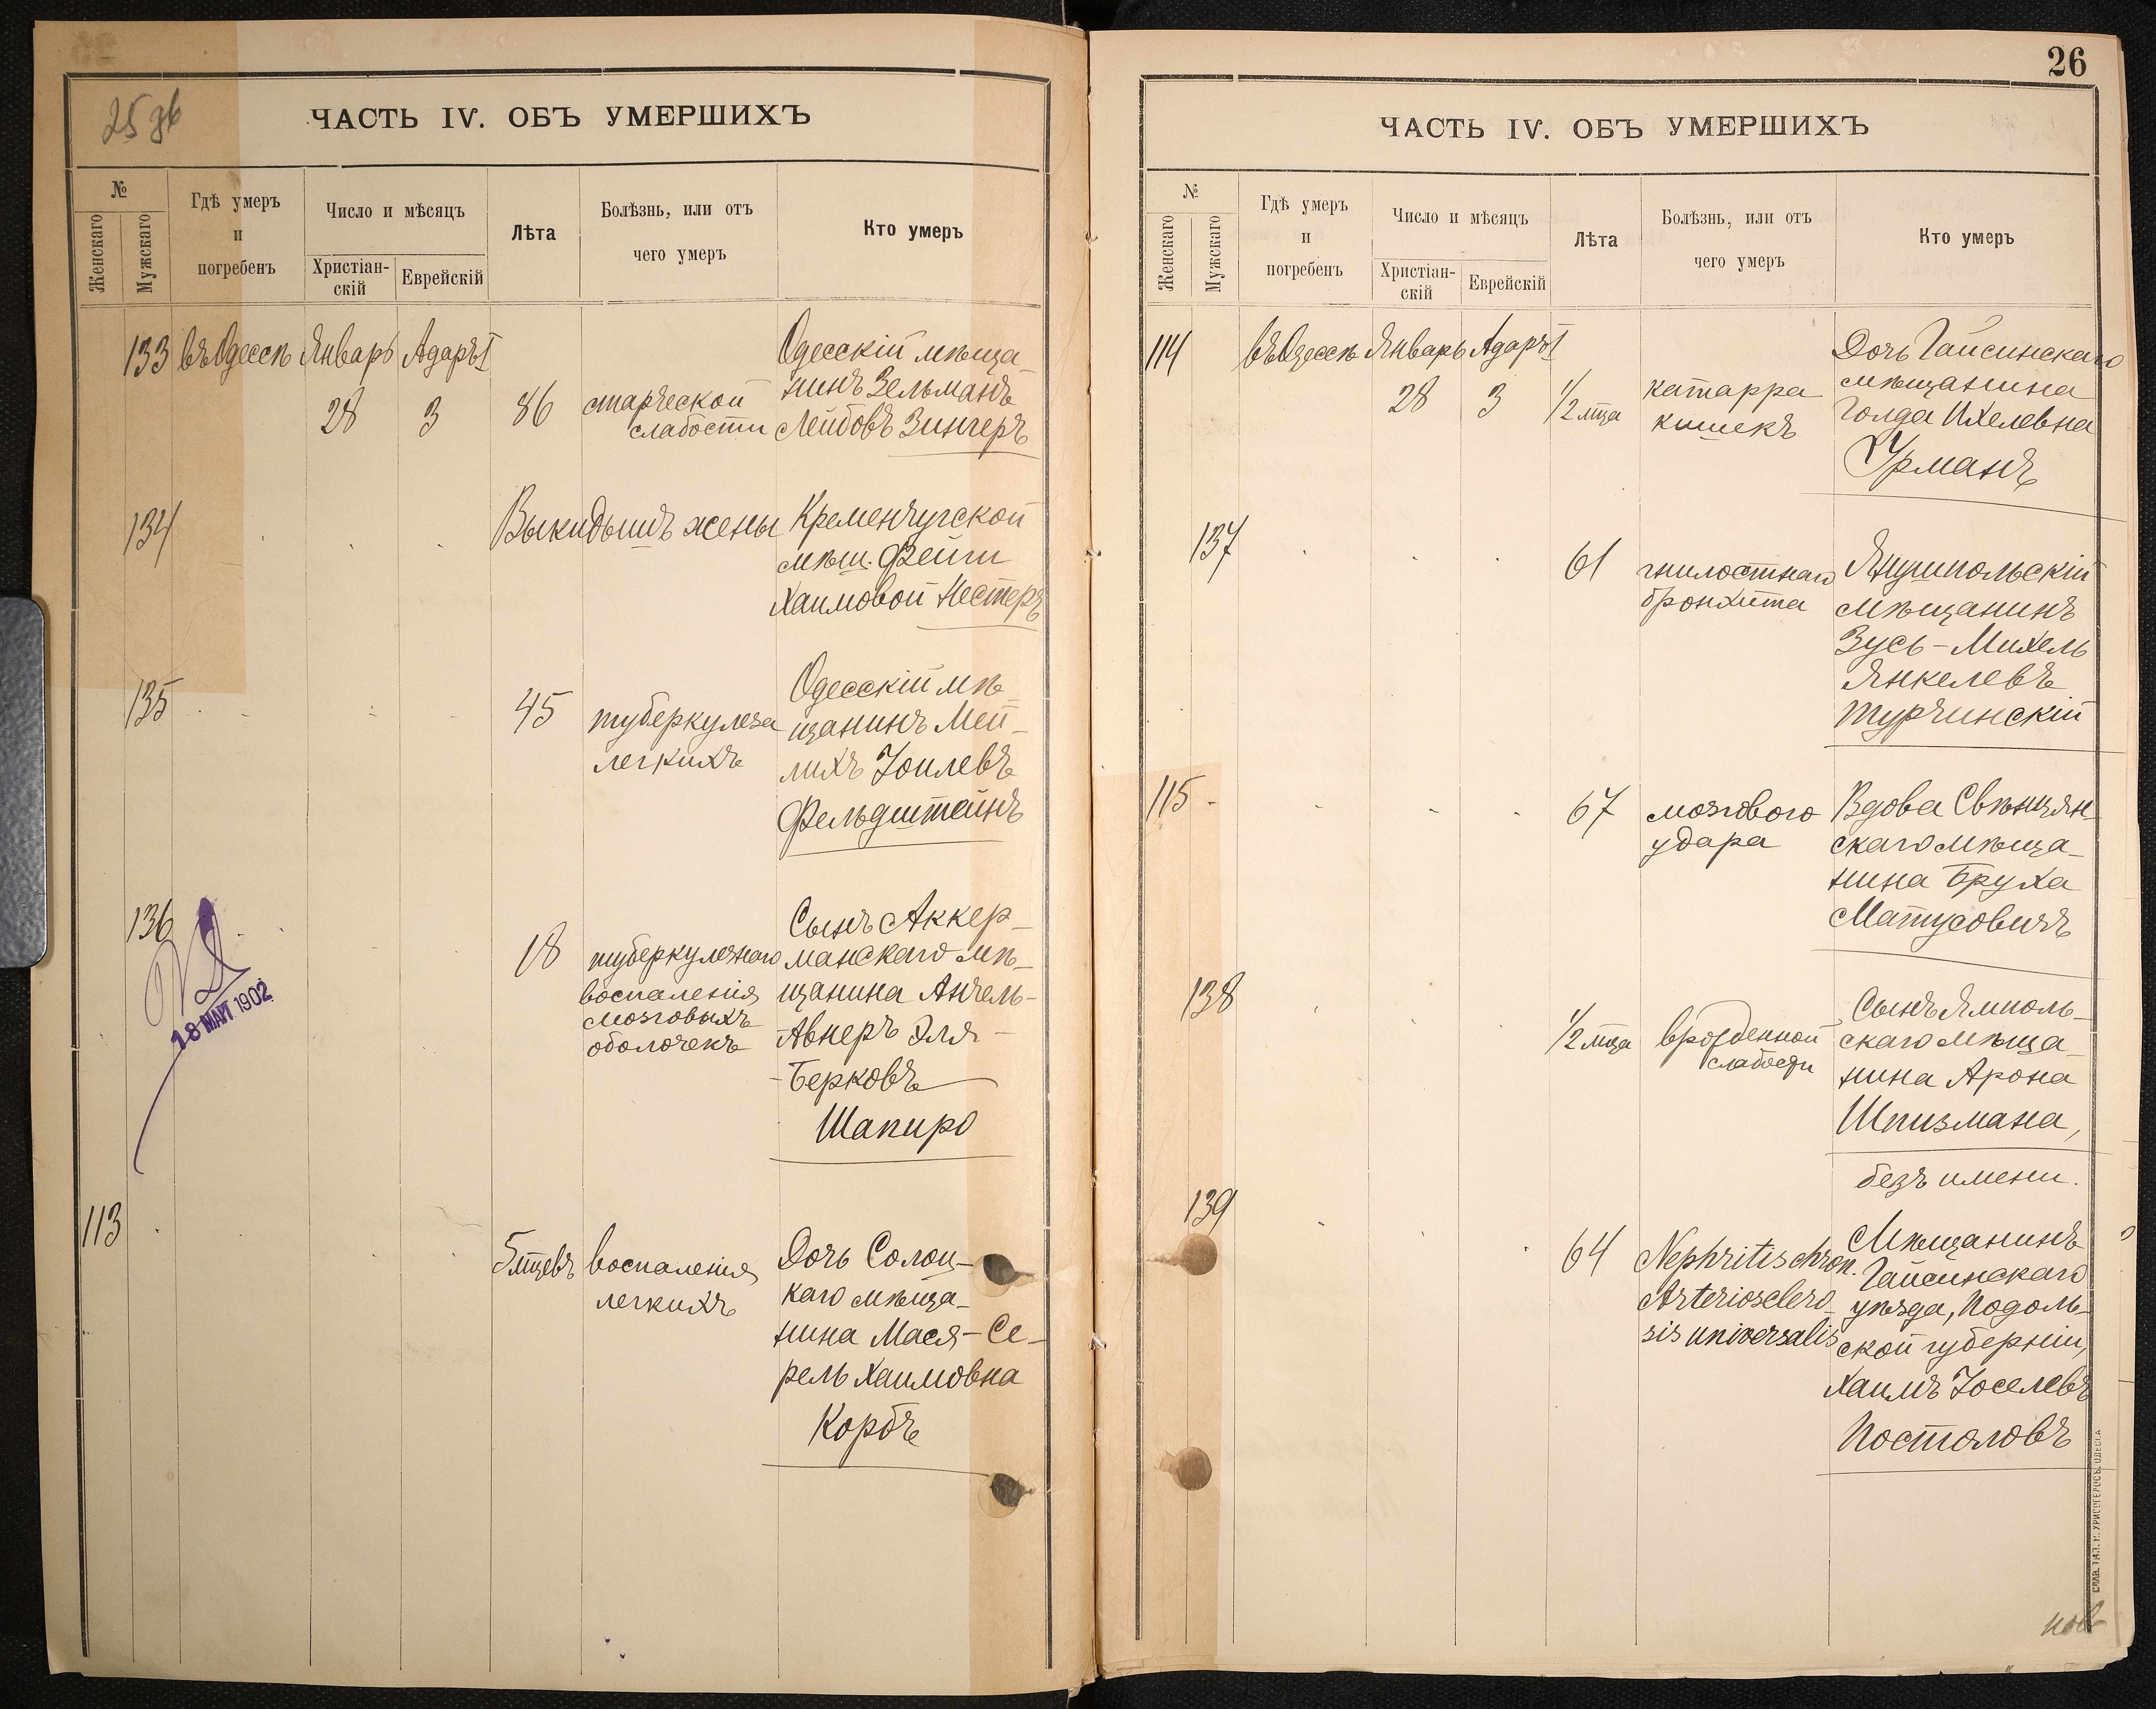 25 зв
ЧАСТЬ IV. ОБЪ УМЕРШИХЪ
№
Женскаго
Мужскаго
Гдѣ умеръ
и
погребенъ
Число и мѣсяцъ
Христіан-
скій
Еврейскій
Лѣта
Болѣзнь, или отъ
чего умеръ
Кто умеръ
133 въ Одессѣ Январь Адаръ I
28 3 86 старческой
слабости
Одесскій мѣща-
нинъ Зельманъ
Лейбовъ Зингеръ
134 Выкидышъ жены Кременчугской
мѣщ. Фейги
Хаимовой Нестеръ
135 45 туберкулеза
легкихъ
Одесскій мѣ-
щанинъ Мей-
лихъ Іоилевъ
Фельдштейнъ
136 18 туберкулезнаго
воспаленія
мозговыхъ
оболочекъ
Сынъ Аккер-
манскаго мѣ-
щанина Ангель-
Авнеръ Эля-
-Берковъ
Шапиро
18 МАЙ 1902
113 5 мцевъ воспаленія
легкихъ
Дочь Солоц-
каго мѣща-
нина Мася-Се-
рель Хаимовна
Корбъ
26
ЧАСТЬ IV. ОБЪ УМЕРШИХЪ
№
Женскаго
Мужскаго
Гдѣ умеръ
и
погребенъ
Число и мѣсяцъ
Христіан-
скій
Еврейскій
Лѣта
Болѣзнь, или отъ
чего умеръ
Кто умеръ
114 въ Одессѣ Январь Адаръ I
28 3 1/2 мца катарра
кишекъ
Дочь Гайсинскаго
мѣщанина
Голда Ихелевна
Урманъ
137 61 гнилостнаго
бронхита
Янушпольскій
мѣщанинъ
Зусь-Михель
Янкелевъ
Турчинскій
115 67 мозгового
удара
Вдова Свѣнцян-
скаго мѣща-
нина Бруха
Матусовичъ
138 1/2 мца врожденной
слабости
Сынъ Ямполь-
скаго мѣща-
нина Арона
Шпизмана,
безъ имени.
139 64 Nephritis chron.
Arterioscléro-
sis universalis
Мѣщанинъ
Гайсинскаго
уѣзда, Подоль-
ской губерніи,
Хаимъ Іоселевъ
Постоловъ
СЛАВ. ТИП. Н. ХРИСОГЕЛОСЪ. ОДЕССА